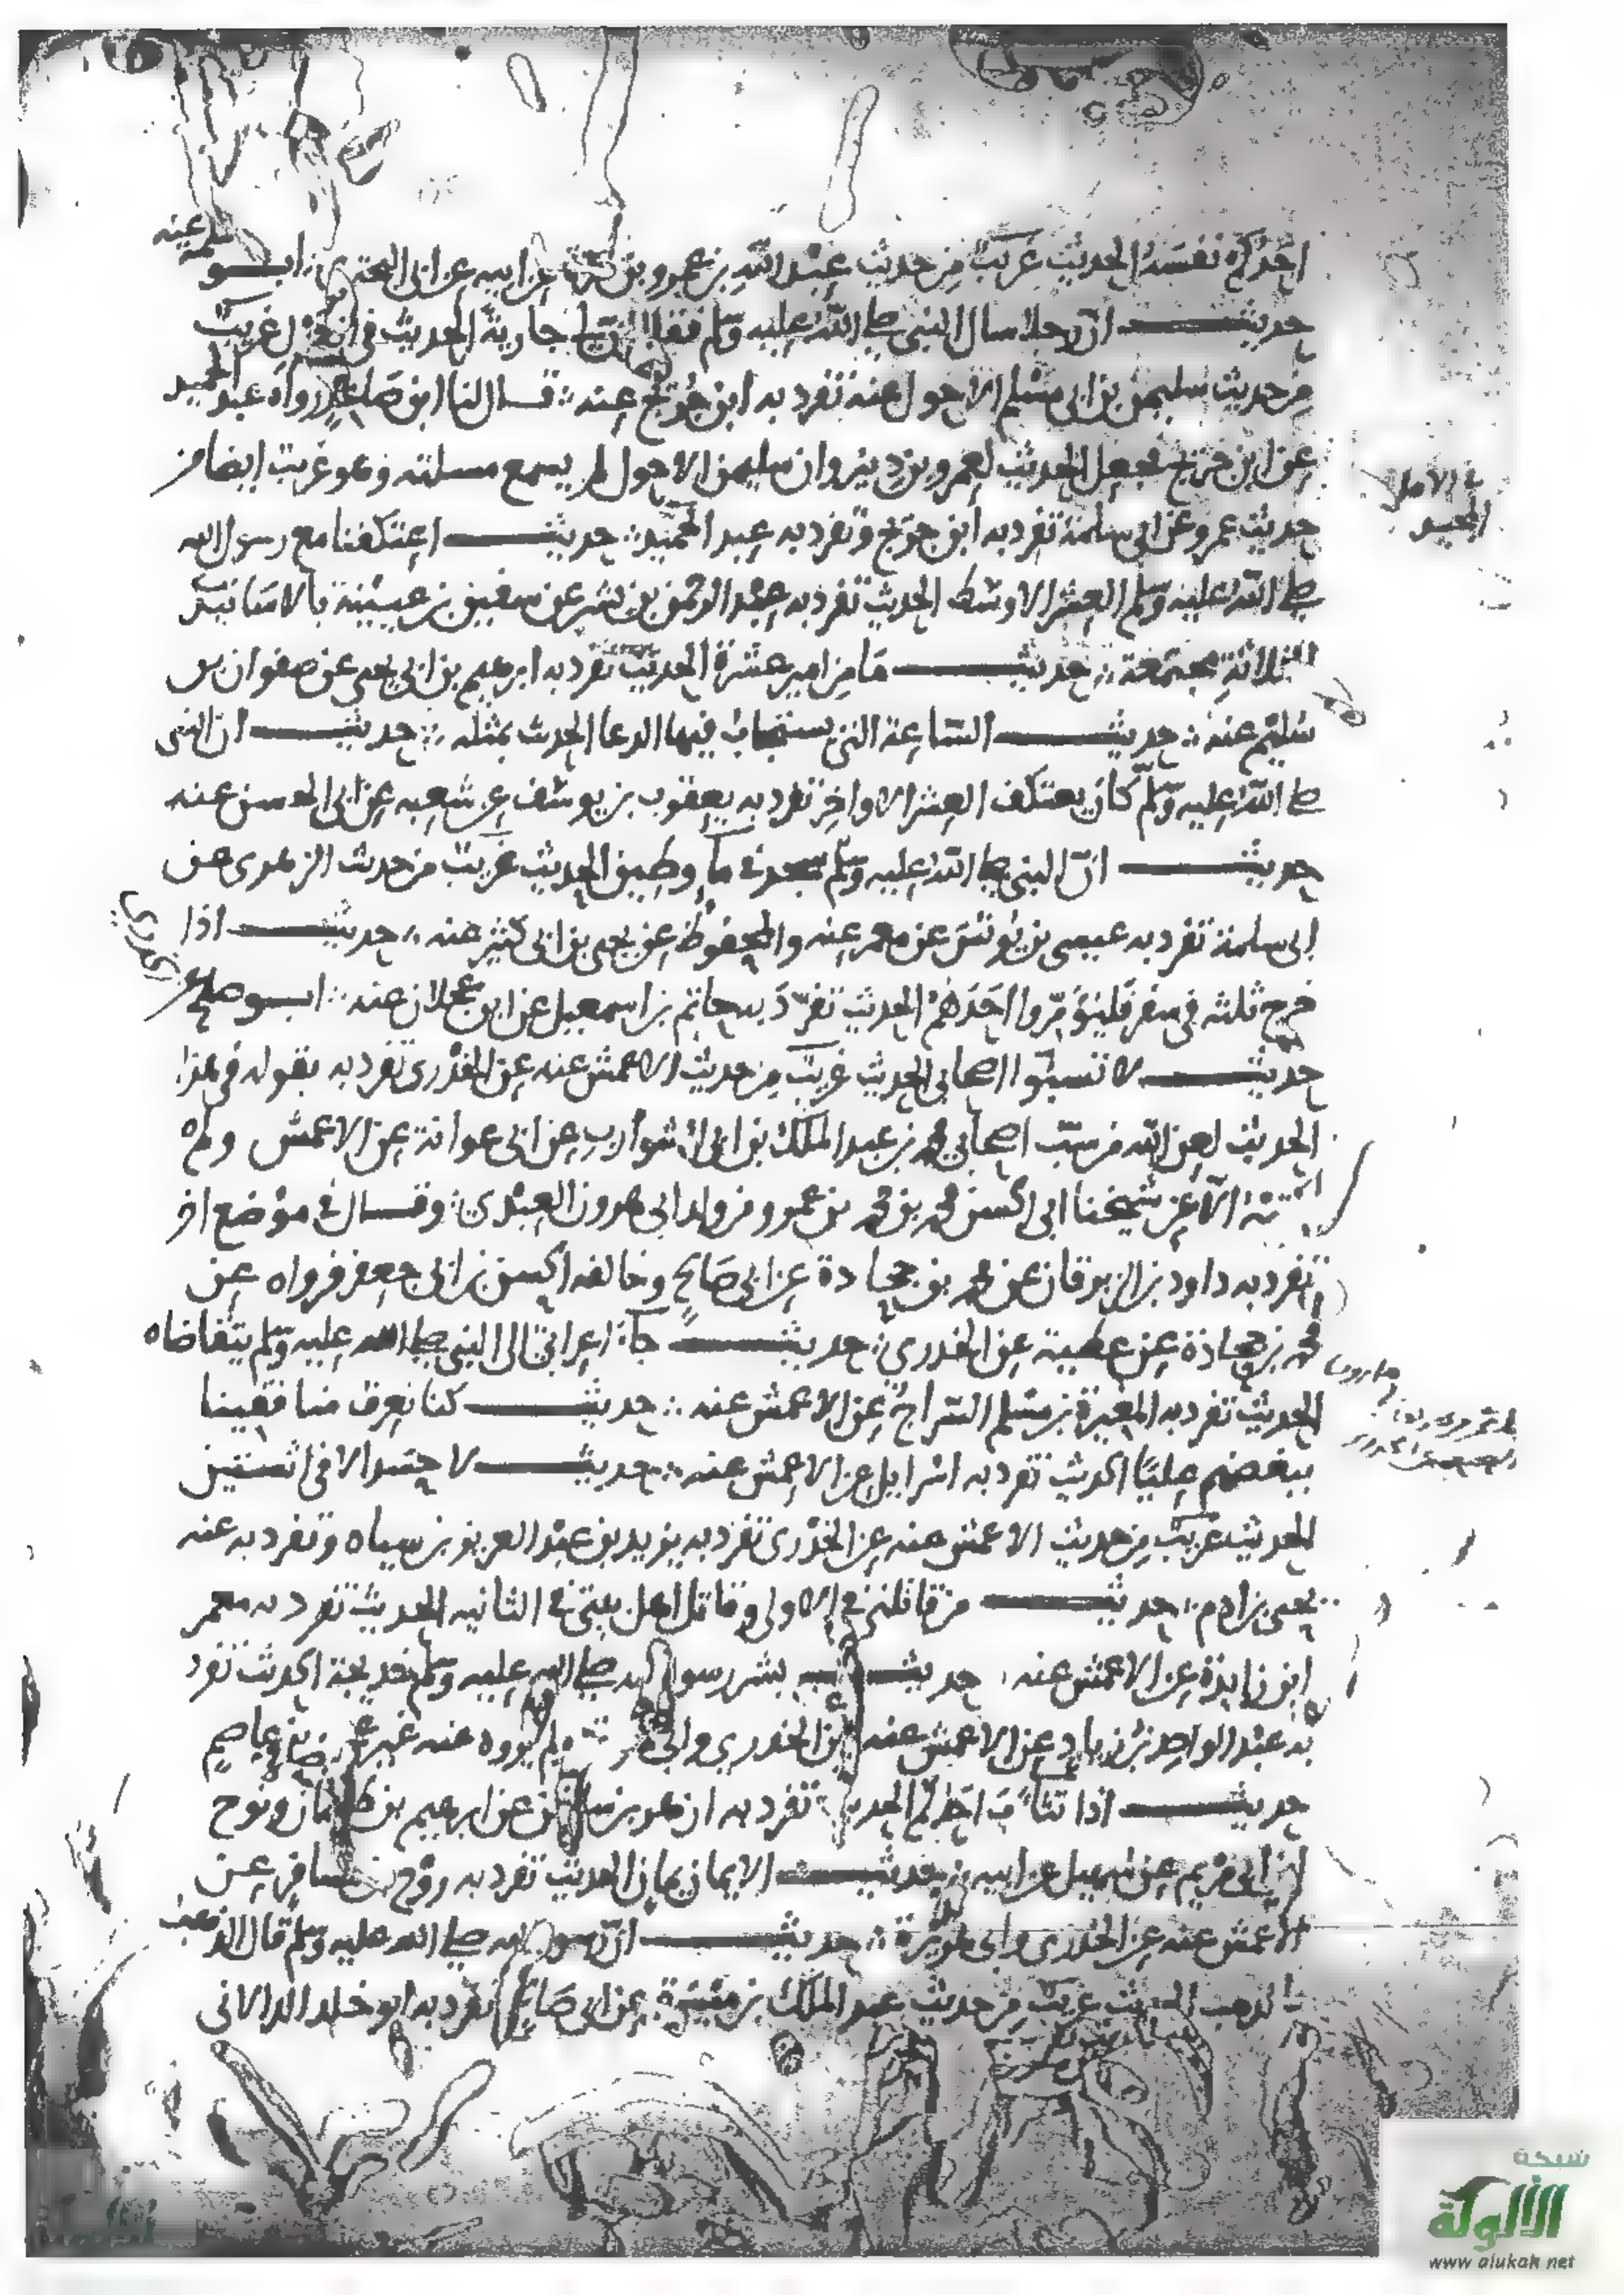 احدكم نفسه الحديث غريب من حديث عبد الله بن عمرو بن مرة عن ابيه عن ابي البختري : ابو سلمة عنه
حديث ان رجلا سال النبي صلى الله عليه وسلم فقال جارية الحديث في العزل غريب
من حديث سليمن بن ابي مسلم الاحول عنه تفرد به ابن جريج عنه : قال لنا ابن صاعد رواه عبد المجيد
عن ابن جريج فجعل الحديث لعمرو بن دينر وان سليمن الاحول لم يسمع مسلته وهو غريب ايضا من
في الاصل
حديث عمرو عن ابي سلمة تفرد به ابن جريج وتفرد به عبد المجيد : حديث اعتكفنا مع رسول الله
صلى الله عليه وسلم العشر الاوسط الحديث تفرد به عبد الرحمن بن بشر عن سفين بن عيينة بالاسانيد
الثلاثة مجتمعة : حديث ما من امير عشرة الحديث تفرد به ابرهيم بن ابي يحيى عن صفوان بن
سليم عنه : حديث الساعة التي يستجاب فيها الدعا الحديث بمثله : حديث ان النبي
صلى الله عليه وسلم كان يعتكف العشر الاواخر تفرد به يعقوب بن يوسف عن شعبه عن ابي الحسن عنه
حديث ان النبي صلى الله عليه وسلم سجد في ما وطين الحديث غريب من حديث الزهري عن
ابي سلمة تفرد به عيسى بن يونس عن معمر عنه والمحفوظ عن يحيى بن ابي كثير عنه : حديث اذا
خرج ثلثه في سفر فليؤمروا احدهم الحديث تفرد به حاتم بن اسمعيل عن ابن عجلان عنه : ابو صالح عن
الخدري
حديث لا تسبوا اصحابي الحديث غريب من حديث الاعمش عنه عن الخدري تفرد به بقوله في هذا
الحديث لعن الله من سب اصحابي محمد بن عبد الملك بن ابي الشوارب عن ابي عوانة عن الاعمش ولم
الا عن شيخنا ابي الحسن محمد بن محمد بن عمرو من ولد ابي هرون العبدي : وقال في موضع اخر
تفرد به داود بن الزبرقان عن محمد بن جحادة عن ابي صالح وخالفه الحسن بن ابي جعفر فرواه عن
محمد بن جحادة عن عطية عن الخدري : حديث جا اعرابي الى النبي صلى الله عليه وسلم يتقاضاه
الحديث تفرد به المغيرة بن مسلم السراج عن الاعمش عنه : حديث كنا نعرف منافقينا
ببغضهم عليا الحديث تفرد به اسرايل عن الاعمش عنه : حديث لا حسد الا في اثنتين
الحديث غريب من حديث الاعمش عنه عن الخدري تفرد به يزيد بن عبد العزيز بن سياه وتفرد به عنه
يحيى بن ادم : حديث من قاتلني في الاولى وقاتل اهل بيتي في الثانيه الحديث تفرد به معمر
ابن زايدة عن الاعمش عنه : حديث بشر رسول الله صلى الله عليه وسلم خديجة الحديث تفرد
به عبد الواحد بن زياد عن الاعمش عنه عن الخدري وابي ولم يروه عنه غير عاصم
حديث اذا تثاءب احدكم الحديث تفرد به ازهر بن عن ابرهيم بن طهمان ونوح
ابن ابي مريم عن سهيل عن ابيه : حديث الايمان يمان الحديث تفرد به روح بن مسافر عن
الاعمش عنه عن الخدري وابي هريرة : حديث ان رسول الله صلى الله عليه وسلم قال الذهب
بالذهب الحديث غريب من حديث عبد الملك بن ميسرة عن ابي صالح تفرد به ابو خلد الدالاني
شبكة
الألوكة
www.alukah.net